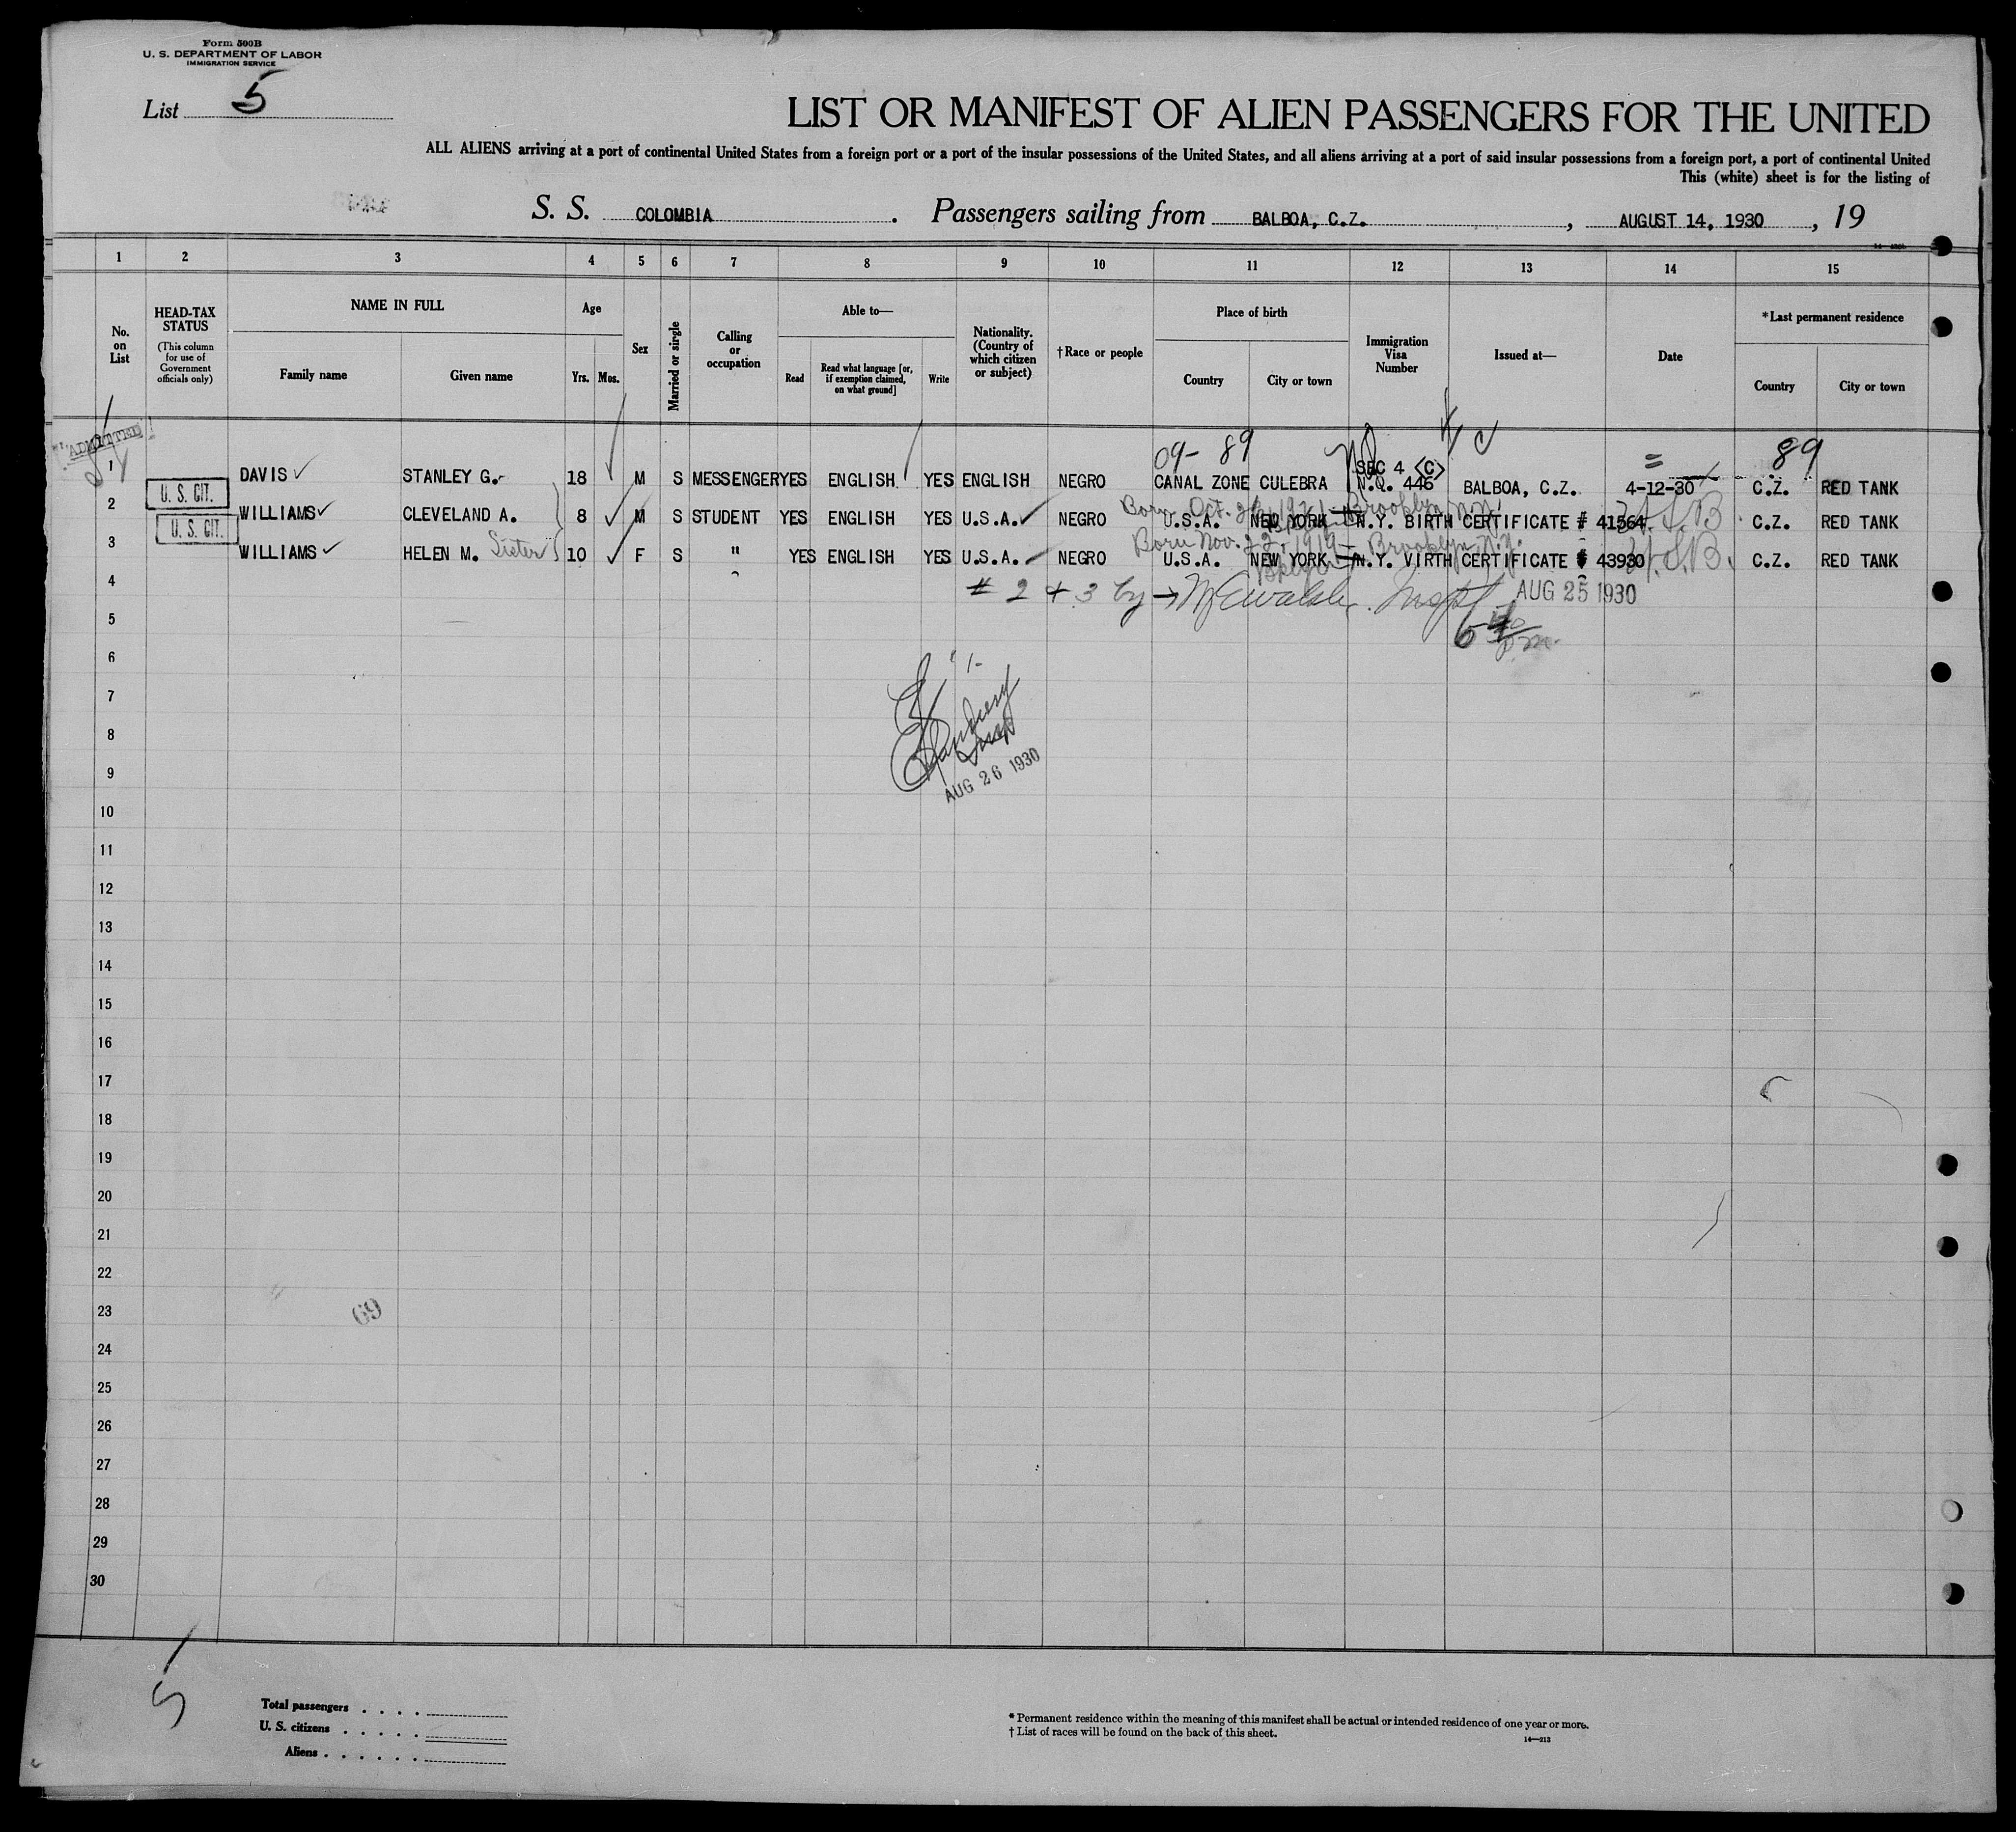 Form 500B
U. S. DEPARTMENT OF LABOR
IMMIGRATION SERVICE
List 5
LIST OR MANIFEST OF ALIEN PASSENGERS FOR THE UNITED
ALL ALIENS arriving at a port of continental United States from a foreign port or a port of the insular possessions of the United States, and all aliens arriving at a port of said insular possessions from a foreign port, a port of continental United
This (white) sheet is for the listing of
S. S. COLOMBIA . Passengers sailing from BALBOA, C.Z. , AUGUST 14, 1930 , 19
1 2 3 4 5 6 7 8 9 10 11 12 13 14 15
No. on List
HEAD-TAX STATUS
(This column for use of Government officials only)
NAME IN FULL
Family name Given name
Age
Yrs. Mos.
Sex
Married or single
Calling or occupation
Able to—
Read
Read what language [or, if exemption claimed, on what ground]
Write
Nationality. (Country of which citizen or subject)
† Race or people
Place of birth
Country City or town
Immigration Visa Number
Issued at—
Date
* Last permanent residence
Country City or town
ADMITTED
09- 89 89
SEC 4 (C)
1 DAVIS STANLEY G. 18 M S MESSENGER YES ENGLISH YES ENGLISH NEGRO CANAL ZONE CULEBRA N.Q. 446 BALBOA, C.Z. 4-12-30 C.Z. RED TANK
Born Oct. Brooklyn, N.Y.
2 U. S. CIT. WILLIAMS CLEVELAND A. 8 M S STUDENT YES ENGLISH YES U.S.A. NEGRO U.S.A. NEW YORK N.Y. BIRTH CERTIFICATE # 41564 C.Z. RED TANK
Born Nov. 22, 1919 - Brooklyn, N.Y.
3 U. S. CIT. WILLIAMS HELEN M. Sister 10 F S " YES ENGLISH YES U.S.A. NEGRO U.S.A. NEW YORK N.Y. VIRTH CERTIFICATE # 43930 C.Z. RED TANK
4 # 2 & 3 by Inspt AUG 25 1930
5
6
7
8
9
AUG 26 1930
10
11
12
13
14
15
16
17
18
19
20
21
22
23
69
24
25
26
27
28
29
30
5
Total passengers . . . .
U. S. citizens . . . . .
Aliens . . . . . .
* Permanent residence within the meaning of this manifest shall be actual or intended residence of one year or more.
† List of races will be found on the back of this sheet.
14—213